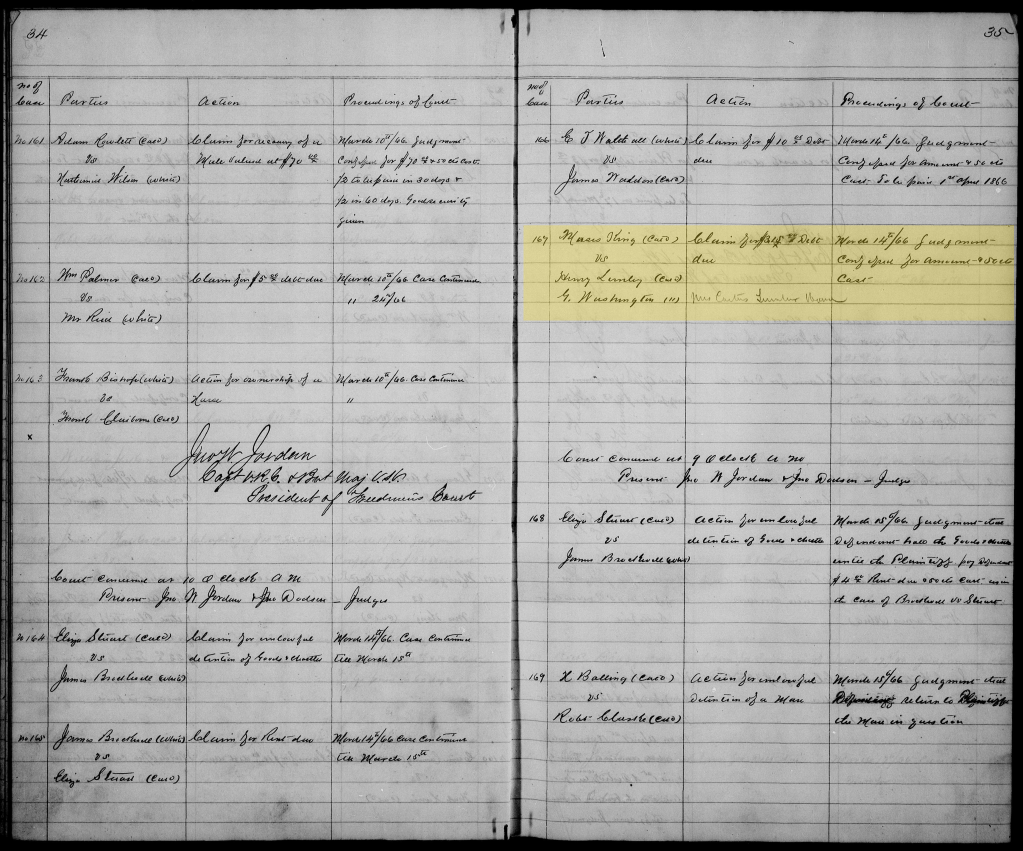 34
no of Case Parties Action Proceedings of Court
No 161 Adam Rowlett (Cold) Claim for recovery of a March 10th/66. Judgment
vs Mule valued at $70 00 Confessed for $70 & 50 cts Cost.
Nathaniel Wilson (White) 1/2 to be paid in 30 days &
1/2 in 60 days. Good security
given
No 162 Wm Palmer (Cold) Claim for $5 00 debt due March 10th/66 Case Continued
vs " 24th/66
Mr Reid (White)
No 163 Frank Bishop (White) Action for ownership of a March 10th/66. Case Continued
vs Horse "
Frank Claiborne (Cold)
x
Jno W Jordan
Capt V.R.C. & Bvt Maj U.S.V.
President of Freedmens Court
Court convened at 10 O clock A M
Present Jno. W Jordan & Jno Dodson - Judges
No 164 Eliza Stuart (Cold) Claim for unlawful March 14th/66. Case Continued
vs detention of Goods & chattles till March 15th
James Brockwell (White)
No 165 James Brockwell (White) Claim for Rent due March 14th/66 Case Continued
vs till March 15th
Eliza Stuart (Cold)
35
no of Case Parties Action Proceedings of Court
166 E T Walthall (White) Claim for $10 00 Debt March 14th/66. Judgment
vs due Confessed for Amount & 50 cts
James Waddon (Cold) Cost To be paid 1st April 1866
167 Moses King (Cold) Claim for Debt March 14th/66 Judgment
vs due Confessed for Amount & 50 cts
Henry Lumley (Cold) Cost
G. Washington (") Mrs
Court convened at 9 O clock A M
Present Jno W Jordan & Jno Dodson - Judges
168 Eliza Stuart (Cold) Action for unlawful March 15th/66. Judgment that
vs detention of Goods & chattles Defendant hold the Goods & chattles
James Brockwell (White) until the Plaintiff pay Defendant
$4 00 Rent due & 50 cts Cost as in
the case of Brockwell vs Stuart
169 H Bolling (Cold) Action for unlawful March 15th/66 Judgment that
vs Detention of a Mare return to
Robt Clarke (Cold) the Mare in question